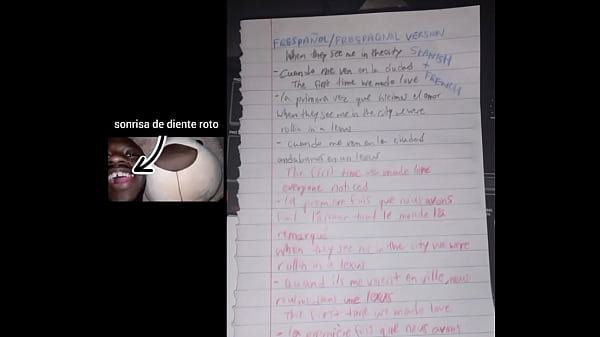 sonrisa de diente roto
FRESPAÑOL/FRESPAGNOL VERSION
When they see me in the city
SPANISH
- Cuando me ven en la ciudad
+
The first time we made love
FRENCH
- la primera vez que hicimos el amor
When they see me in the city we were
rollin in a lexus
- cuando me ven en la ciudad
andabamos en un lexus
The first time we made love
everyone noticed
- la première fois que nous avons
fait l'amour tout le monde l'a
remarqué
When they see me in the city we were
rollin in a lexus
- Quand ils me voient en ville, nous
roulions dans une lexus
The first time we made love
- la première fois que nous avons